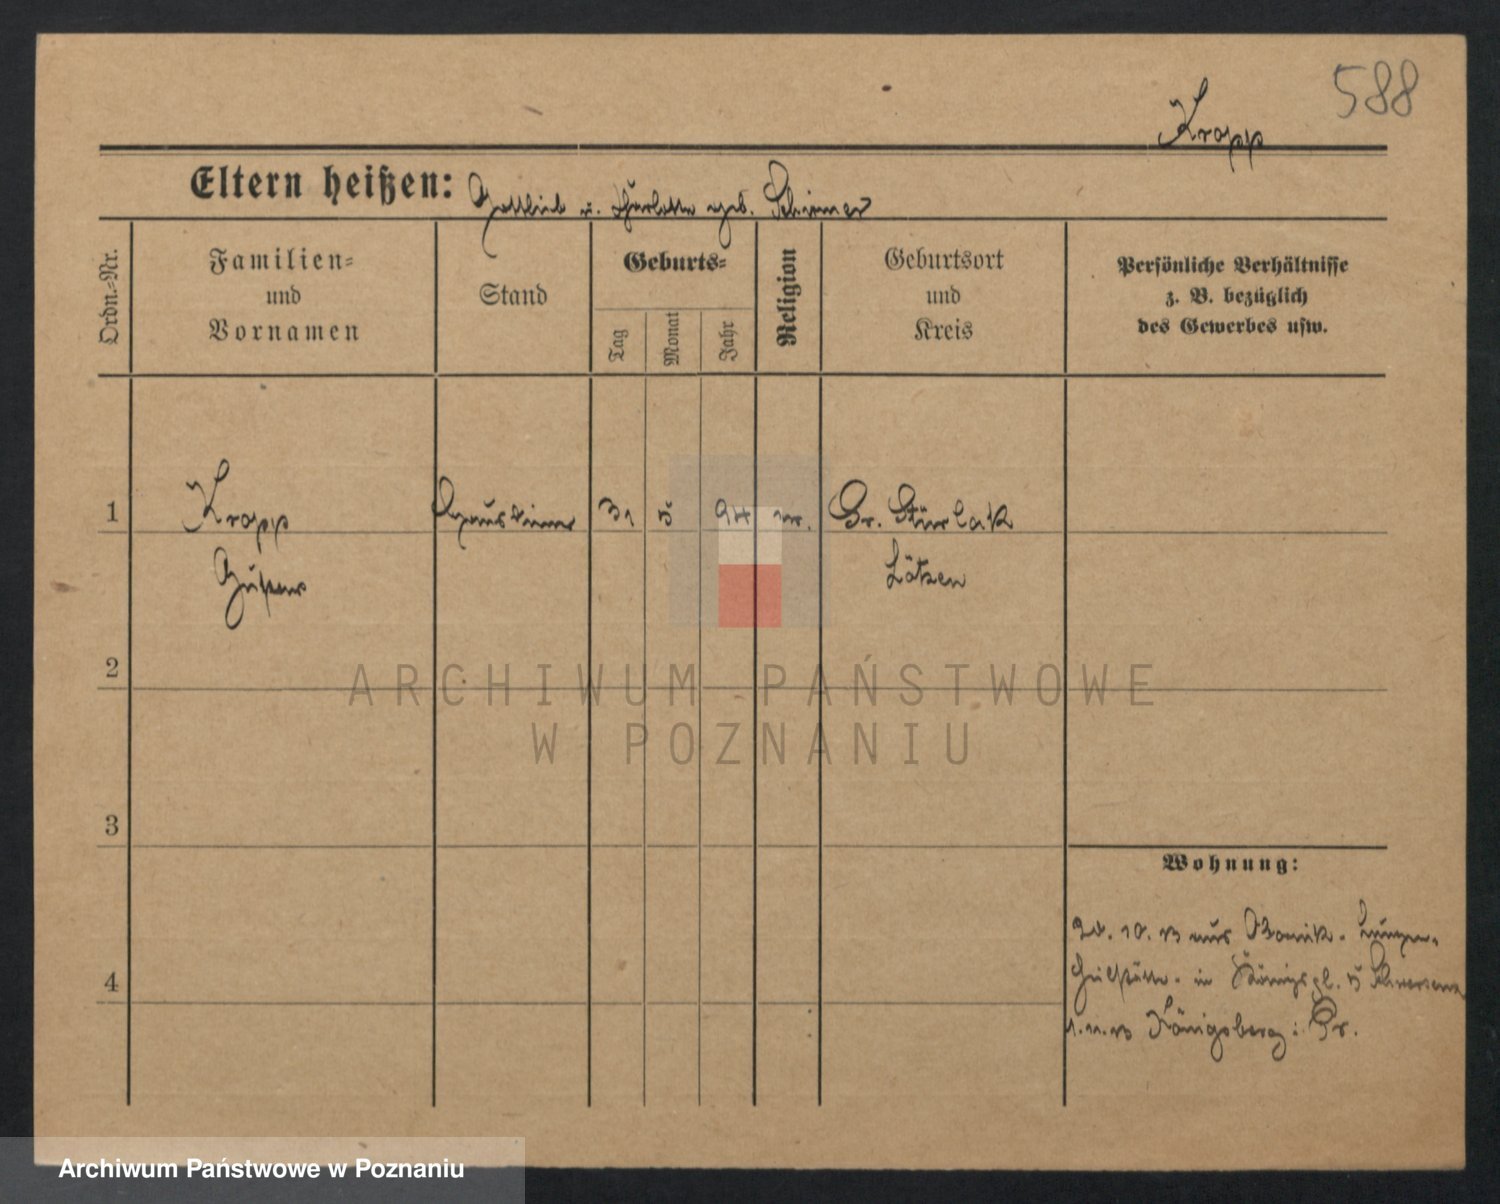 588
Kropp
Eltern heißen: Gottlieb u. Charlotte geb.
Ordn.-Nr.
Familien-
und
Vornamen
Stand
Geburts-
Tag
Monat
Jahr
Religion
Geburtsort
und
Kreis
Persönliche Verhältnisse
z. B. bezüglich
des Gewerbes usw.
1
Kropp
Hausdiener
31
5
94
ev.
Gr. Stürlack
Gustav
Lötzen
2
ARCHIWUM PAŃSTWOWE
W POZNANIU
3
Wohnung:
10. 13 aus Lungen-
heilstätte in Königsgl. b Schwersenz
4
1.11.13 Königsberg i. Pr.
Archiwum Państwowe w Poznaniu